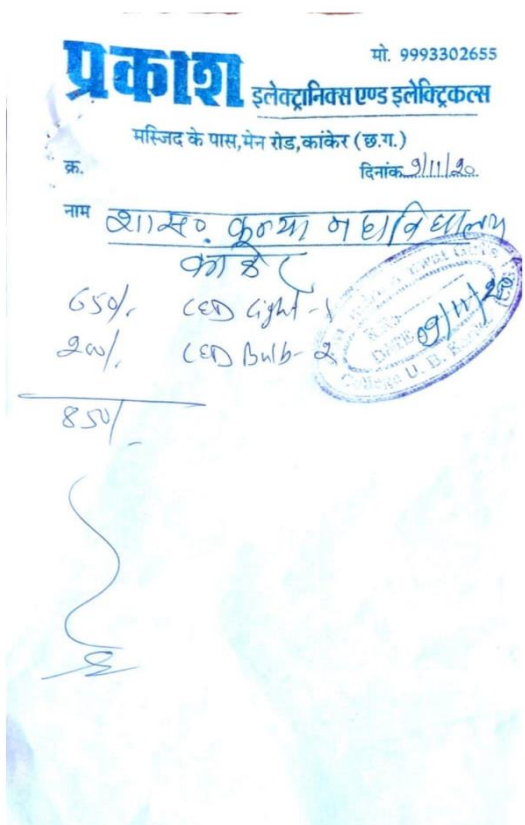 मो. 9993302655
प्रकाश इलेक्ट्रानिक्स एण्ड इलेक्ट्रिकल्स
मस्जिद के पास, मेन रोड, कांकेर (छ.ग.)
क्र. दिनांक 9/11/20
नाम शास. कन्या महाविद्यालय
कांकेर
650/. LED Light - 1
200/. LED Bulb - 2
850/-
DATE 09/11/20
College U. B. Kanker